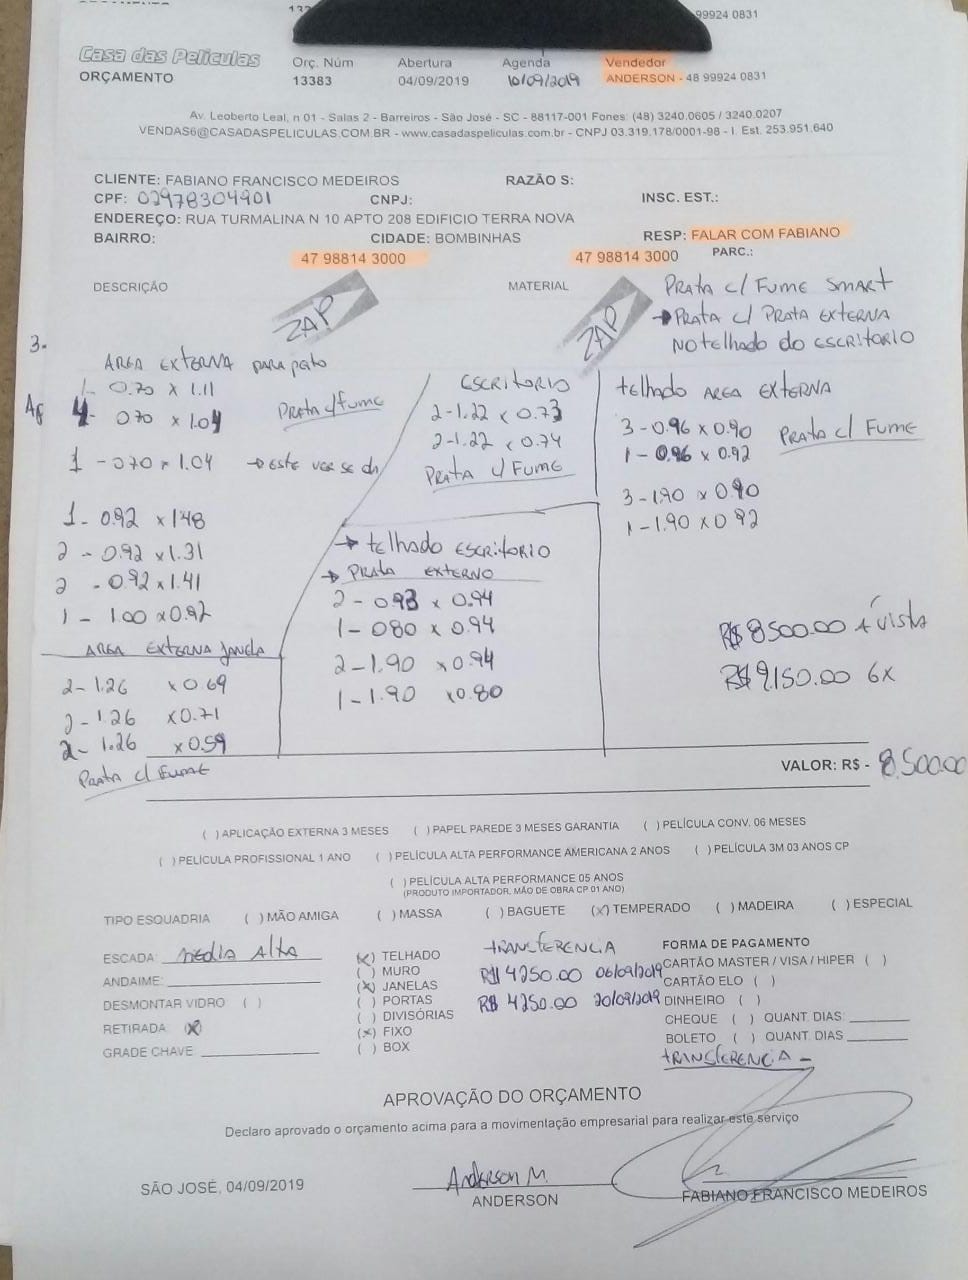 99924 0831
Casa das Películas
ORÇAMENTO
Orç. Núm
13383
Abertura
04/09/2019
Agenda
10/09/2019
Vendedor
ANDERSON - 48 99924 0831
Av. Leoberto Leal, n 01 - Salas 2 - Barreiros - São José - SC - 88117-001 Fones: (48) 3240.0605 / 3240.0207
VENDAS6@CASADASPELICULAS.COM.BR - www.casadaspeliculas.com.br - CNPJ 03.319.178/0001-98 - I. Est. 253.951.640
CLIENTE: FABIANO FRANCISCO MEDEIROS RAZÃO S:
CPF: 02978304901 CNPJ: INSC. EST.:
ENDEREÇO: RUA TURMALINA N 10 APTO 208 EDIFICIO TERRA NOVA
BAIRRO: CIDADE: BOMBINHAS RESP: FALAR COM FABIANO
47 98814 3000 47 98814 3000 PARC.:
DESCRIÇÃO MATERIAL
ZAP ZAP
PRATA C/ FUME SMART
→ PRATA C/ PRATA EXTERNA
NO telhado do ESCRITORIO
3.
AREA EXTERNA PARA peito
1- 0.70 x 1.11
4- 070 x 1.04 PRATA c/fume
1 - 070 x 1.04 → ESTE VER SE dá
1- 0.92 x 148
2 - 0.92 x 1.31
2 - 0.92 x 1.41
1 - 1.00 x 0.92
AREA EXTERNA JANELA
2- 1.26 x 0.69
2- 1.26 x 0.71
2- 1.26 x 0.59
PRATA C/ FUME
ESCRITORIO
2-1.22 x 0.73
2-1.22 x 0.74
PRATA C/ FUME
→ telhado ESCRITORIO
→ PRATA EXTERNO
2 - 0.93 x 0.94
1- 080 x 0.94
2 - 1.90 x 0.94
1 - 1.90 x 0.80
telhado AREA EXTERNA
3 - 0.96 x 0.90 PRATA C/ FUME
1 - 0.96 x 0.92
3 - 1.90 x 0.90
1 - 1.90 x 0.92
R$ 8500.00 Á vista
R$ 9.150.00 6x
VALOR: R$ - 8.500.00
( ) APLICAÇÃO EXTERNA 3 MESES ( ) PAPEL PAREDE 3 MESES GARANTIA ( ) PELÍCULA CONV. 06 MESES
( ) PELÍCULA PROFISSIONAL 1 ANO ( ) PELÍCULA ALTA PERFORMANCE AMERICANA 2 ANOS ( ) PELÍCULA 3M 03 ANOS CP
( ) PELÍCULA ALTA PERFORMANCE 05 ANOS
(PRODUTO IMPORTADOR, MÃO DE OBRA CP 01 ANO)
TIPO ESQUADRIA ( ) MÃO AMIGA ( ) MASSA ( ) BAGUETE (X) TEMPERADO ( ) MADEIRA ( ) ESPECIAL
ESCADA: MÉDIA Alta
ANDAIME:
DESMONTAR VIDRO ( )
RETIRADA: (X)
GRADE CHAVE:
(X) TELHADO
( ) MURO
(X) JANELAS
( ) PORTAS
( ) DIVISÓRIAS
(X) FIXO
( ) BOX
TRANSFERENCIA
R$ 4250.00 06/09/2019
R$ 4250.00 20/09/2019
FORMA DE PAGAMENTO
CARTÃO MASTER / VISA / HIPER ( )
CARTÃO ELO ( )
DINHEIRO ( )
CHEQUE ( ) QUANT. DIAS:
BOLETO ( ) QUANT. DIAS
TRANSFERENCIA -
APROVAÇÃO DO ORÇAMENTO
Declaro aprovado o orçamento acima para a movimentação empresarial para realizar este serviço
SÃO JOSÉ, 04/09/2019
Anderson M.
ANDERSON
FABIANO FRANCISCO MEDEIROS